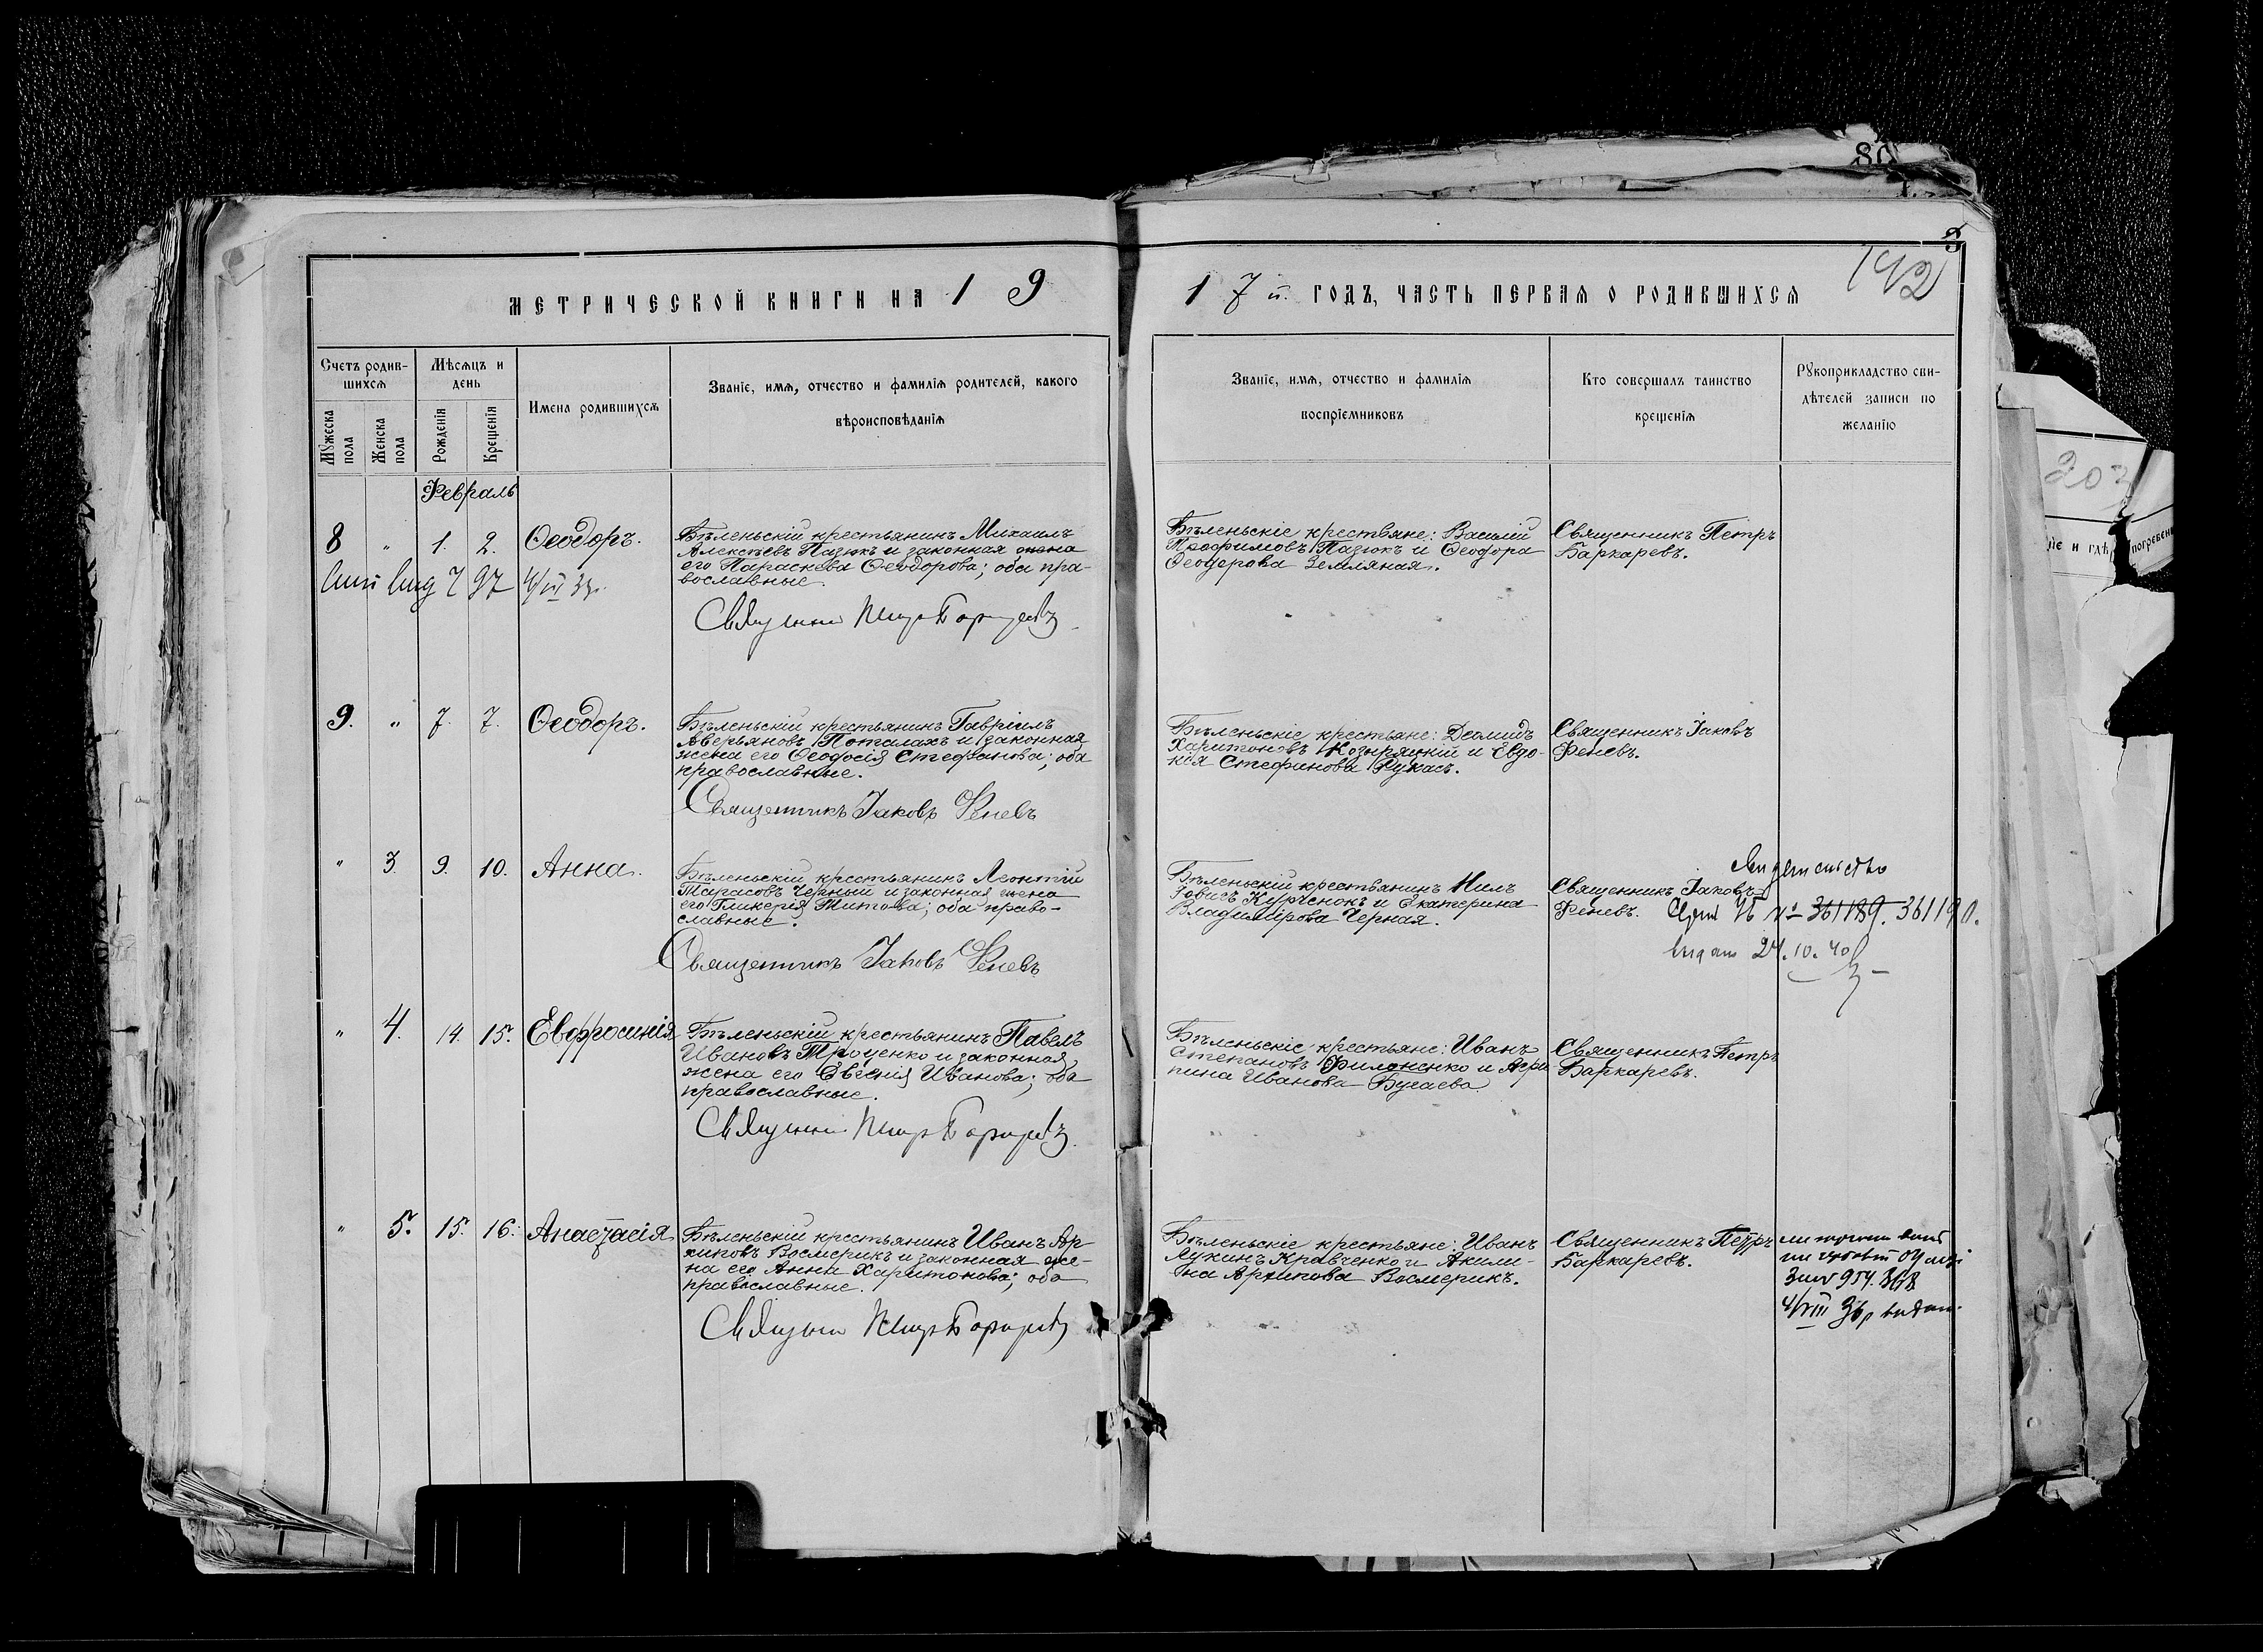 80
8
142
МЕТРИЧЕСКОЙ КНИГИ НА 1 9
1 7 й. ГОДЪ, ЧАСТЬ ПЕРВАЯ О РОДИВШИХСЯ
Счетъ родив-
шихся
Мужеска
пола
Женска
пола
Мѣсяцъ и
день
Рожденія
Крещенія
Имена родившихся
Званіе, имя, отчество и фамилія родителей, какого
вѣроисповѣданія
Званіе, имя, отчество и фамилія
воспріемниковъ
Кто совершалъ таинство
крещенія
Рукоприкладство сви-
дѣтелей записи по
желанію
Февраль
8 " 1. 2. Ѳеодоръ.
Бѣленьскій крестьянинъ Михаилъ
Алексѣевъ Пазюкъ и законная жена
его Параскева Ѳеодорова; оба пра-
вославные.
Бѣленьскіе крестьяне: Василій
Трофимовъ Пазюкъ и Ѳеодора
Ѳеодорова Земляная.
Священникъ Петръ
Баркаревъ.
9. " 7. 7. Ѳеодоръ.
Бѣленьскій крестьянинъ Гавріилъ
Аверьяновъ Поталахъ и законная
жена его Ѳеодосія Стефанова; оба
православные.
Священникъ Іаковъ Феневъ
Бѣленьскіе крестьяне: Деомидъ
Харитоновъ Козыряцкій и Евдо-
кія Стефанова Рукасъ.
Священникъ Іаковъ
Феневъ.
" 3. 9. 10. Анна.
Бѣленьскій крестьянинъ Леонтій
Тарасовъ Черный и законная жена
его Гликерія Титова; оба право-
славные.
Священникъ Іаковъ Феневъ
Бѣленьскій крестьянинъ Нилъ
Іовичъ Курченокъ и Екатерина
Владимірова Черная.
Священникъ Іаковъ
Феневъ.
361189. 361190.
24.10.40
" 4. 14. 15. Евфросинія
Бѣленьскій крестьянинъ Павелъ
Ивановъ Троценко и законная
жена его Евгенія Иванова; оба
православные.
Бѣленьскіе крестьяне: Иванъ
Степановъ Филоненко и Агри
пина Иванова Бугаева
Священникъ Петръ
Баркаревъ.
" 5. 15. 16. Анастасія
Бѣленьскій крестьянинъ Иванъ Ар-
хиповъ Восмерикъ и законная же-
на его Анна Харитонова; оба
православные.
Бѣленьскіе крестьяне: Иванъ
Лукинъ Кравченко и Акили-
на Архипова Восмерикъ.
Священникъ Петръ
Баркаревъ.
203
погребены